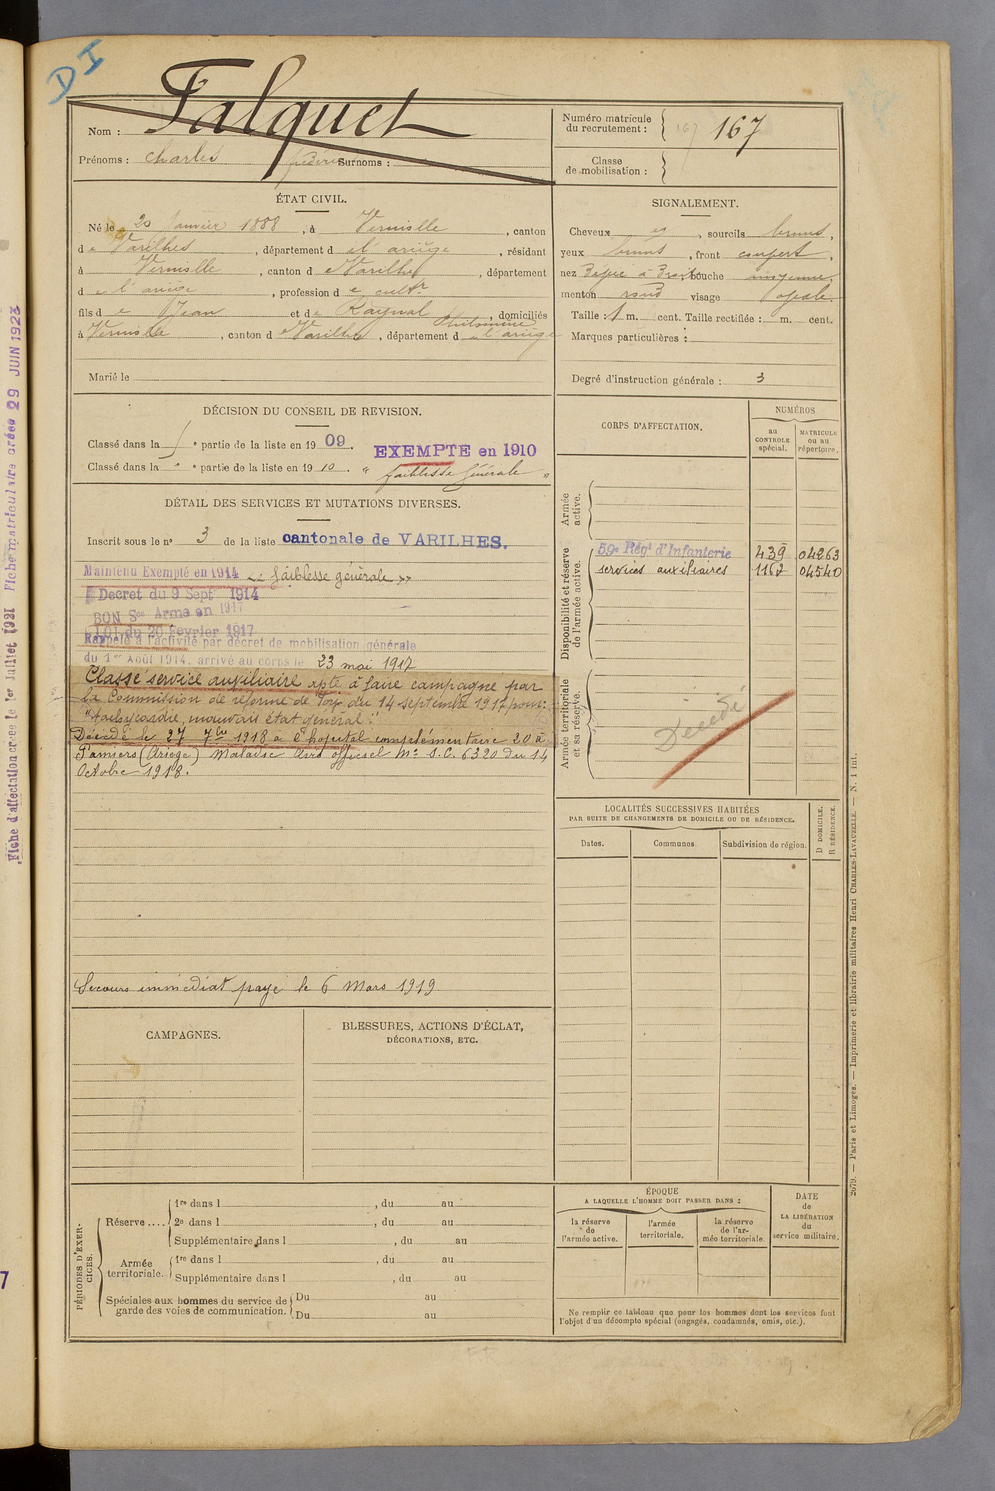 DI
Falquet
Nom :
Prénoms : Charles Surnoms :
Numéro matricule du recrutement : 167
Classe de mobilisation :
ÉTAT CIVIL.
Né le 20 Janvier 1888, à Verniolle, canton
de Varilhes, département de l'ariège, résidant
à Verniolle, canton de Varilhes, département
de l'ariège, profession de cultr
fils de Jean et de Raynal Philomène, domiciliés
à Verniolle, canton de Varilhes, département de l'ariège
Marié le
SIGNALEMENT.
Cheveux et, sourcils bruns,
yeux bruns, front couvert,
nez bouche moyenne,
menton rond visage ovale.
Taille : 1 m. cent. Taille rectifiée : m. cent.
Marques particulières :
Degré d'instruction générale : 3
DÉCISION DU CONSEIL DE REVISION.
Classé dans la 5e partie de la liste en 1909.
Classé dans la " e partie de la liste en 1910.
EXEMPTE en 1910
" faiblesse Générale "
DÉTAIL DES SERVICES ET MUTATIONS DIVERSES.
Inscrit sous le no 3 de la liste cantonale de VARILHES.
Maintenu Exempté en 1914 « faiblesse générale »
Decret du 9 Sept 1914
BON Sce Armé en 1917
LOI du 20 Fevrier 1917
Rappelé à l'activité par décret de mobilisation générale
du 1er Août 1914, arrivé au corps le 23 mai 1917
Classé service auxiliaire apte à faire campagne par
la Commission de réforme de Foix du 14 septembre 1917 pour:
"tachycardie, mauvais état général".
Décédé le 27 7bre 1918 à l'hopital complémentaire 20 à
Pamiers (Ariège) Maladie Avis officiel No S.C. 6320 du 14
Octobre 1918.
Secours immédiat payé le 6 Mars 1919
CORPS D'AFFECTATION.
NUMÉROS
au CONTROLE spécial.
MATRICULE ou au répertoire.
Armée active.
Disponibilité et réserve de l'armée active.
59e Régt d'Infanterie 439 04263
services auxiliaires 1162 04540
Armée territoriale et sa réserve.
Décédé
LOCALITÉS SUCCESSIVES HABITÉES
PAR SUITE DE CHANGEMENTS DE DOMICILE OU DE RÉSIDENCE.
Dates.
Communes.
Subdivision de région.
D DOMICILE.
R RÉSIDENCE.
CAMPAGNES.
BLESSURES, ACTIONS D'ÉCLAT,
DÉCORATIONS, ETC.
PÉRIODES D'EXERCICES.
Réserve ....
1re dans l , du au
2e dans l , du au
Supplémentaire dans l , du au
Armée territoriale.
1re dans l , du au
Supplémentaire dans l , du au
Spéciales aux hommes du service de garde des voies de communication.
Du au
Du au
ÉPOQUE
A LAQUELLE L'HOMME DOIT PASSER DANS :
la réserve de l'armée active.
l'armée territoriale.
la réserve de l'armée territoriale.
DATE de LA LIBÉRATION du service militaire.
Ne remplir ce tableau que pour les hommes dont les services font
l'objet d'un décompte spécial (engagés, condamnés, omis, etc.).
2679. — Paris et Limoges. — Imprimerie et librairie militaires Henri CHARLES-LAVAUZELLE. — N. 1 int.
Fiche d'affectation créée le 1er Juillet 1921 Fiche matriculaire créée 29 JUIN 1923
7